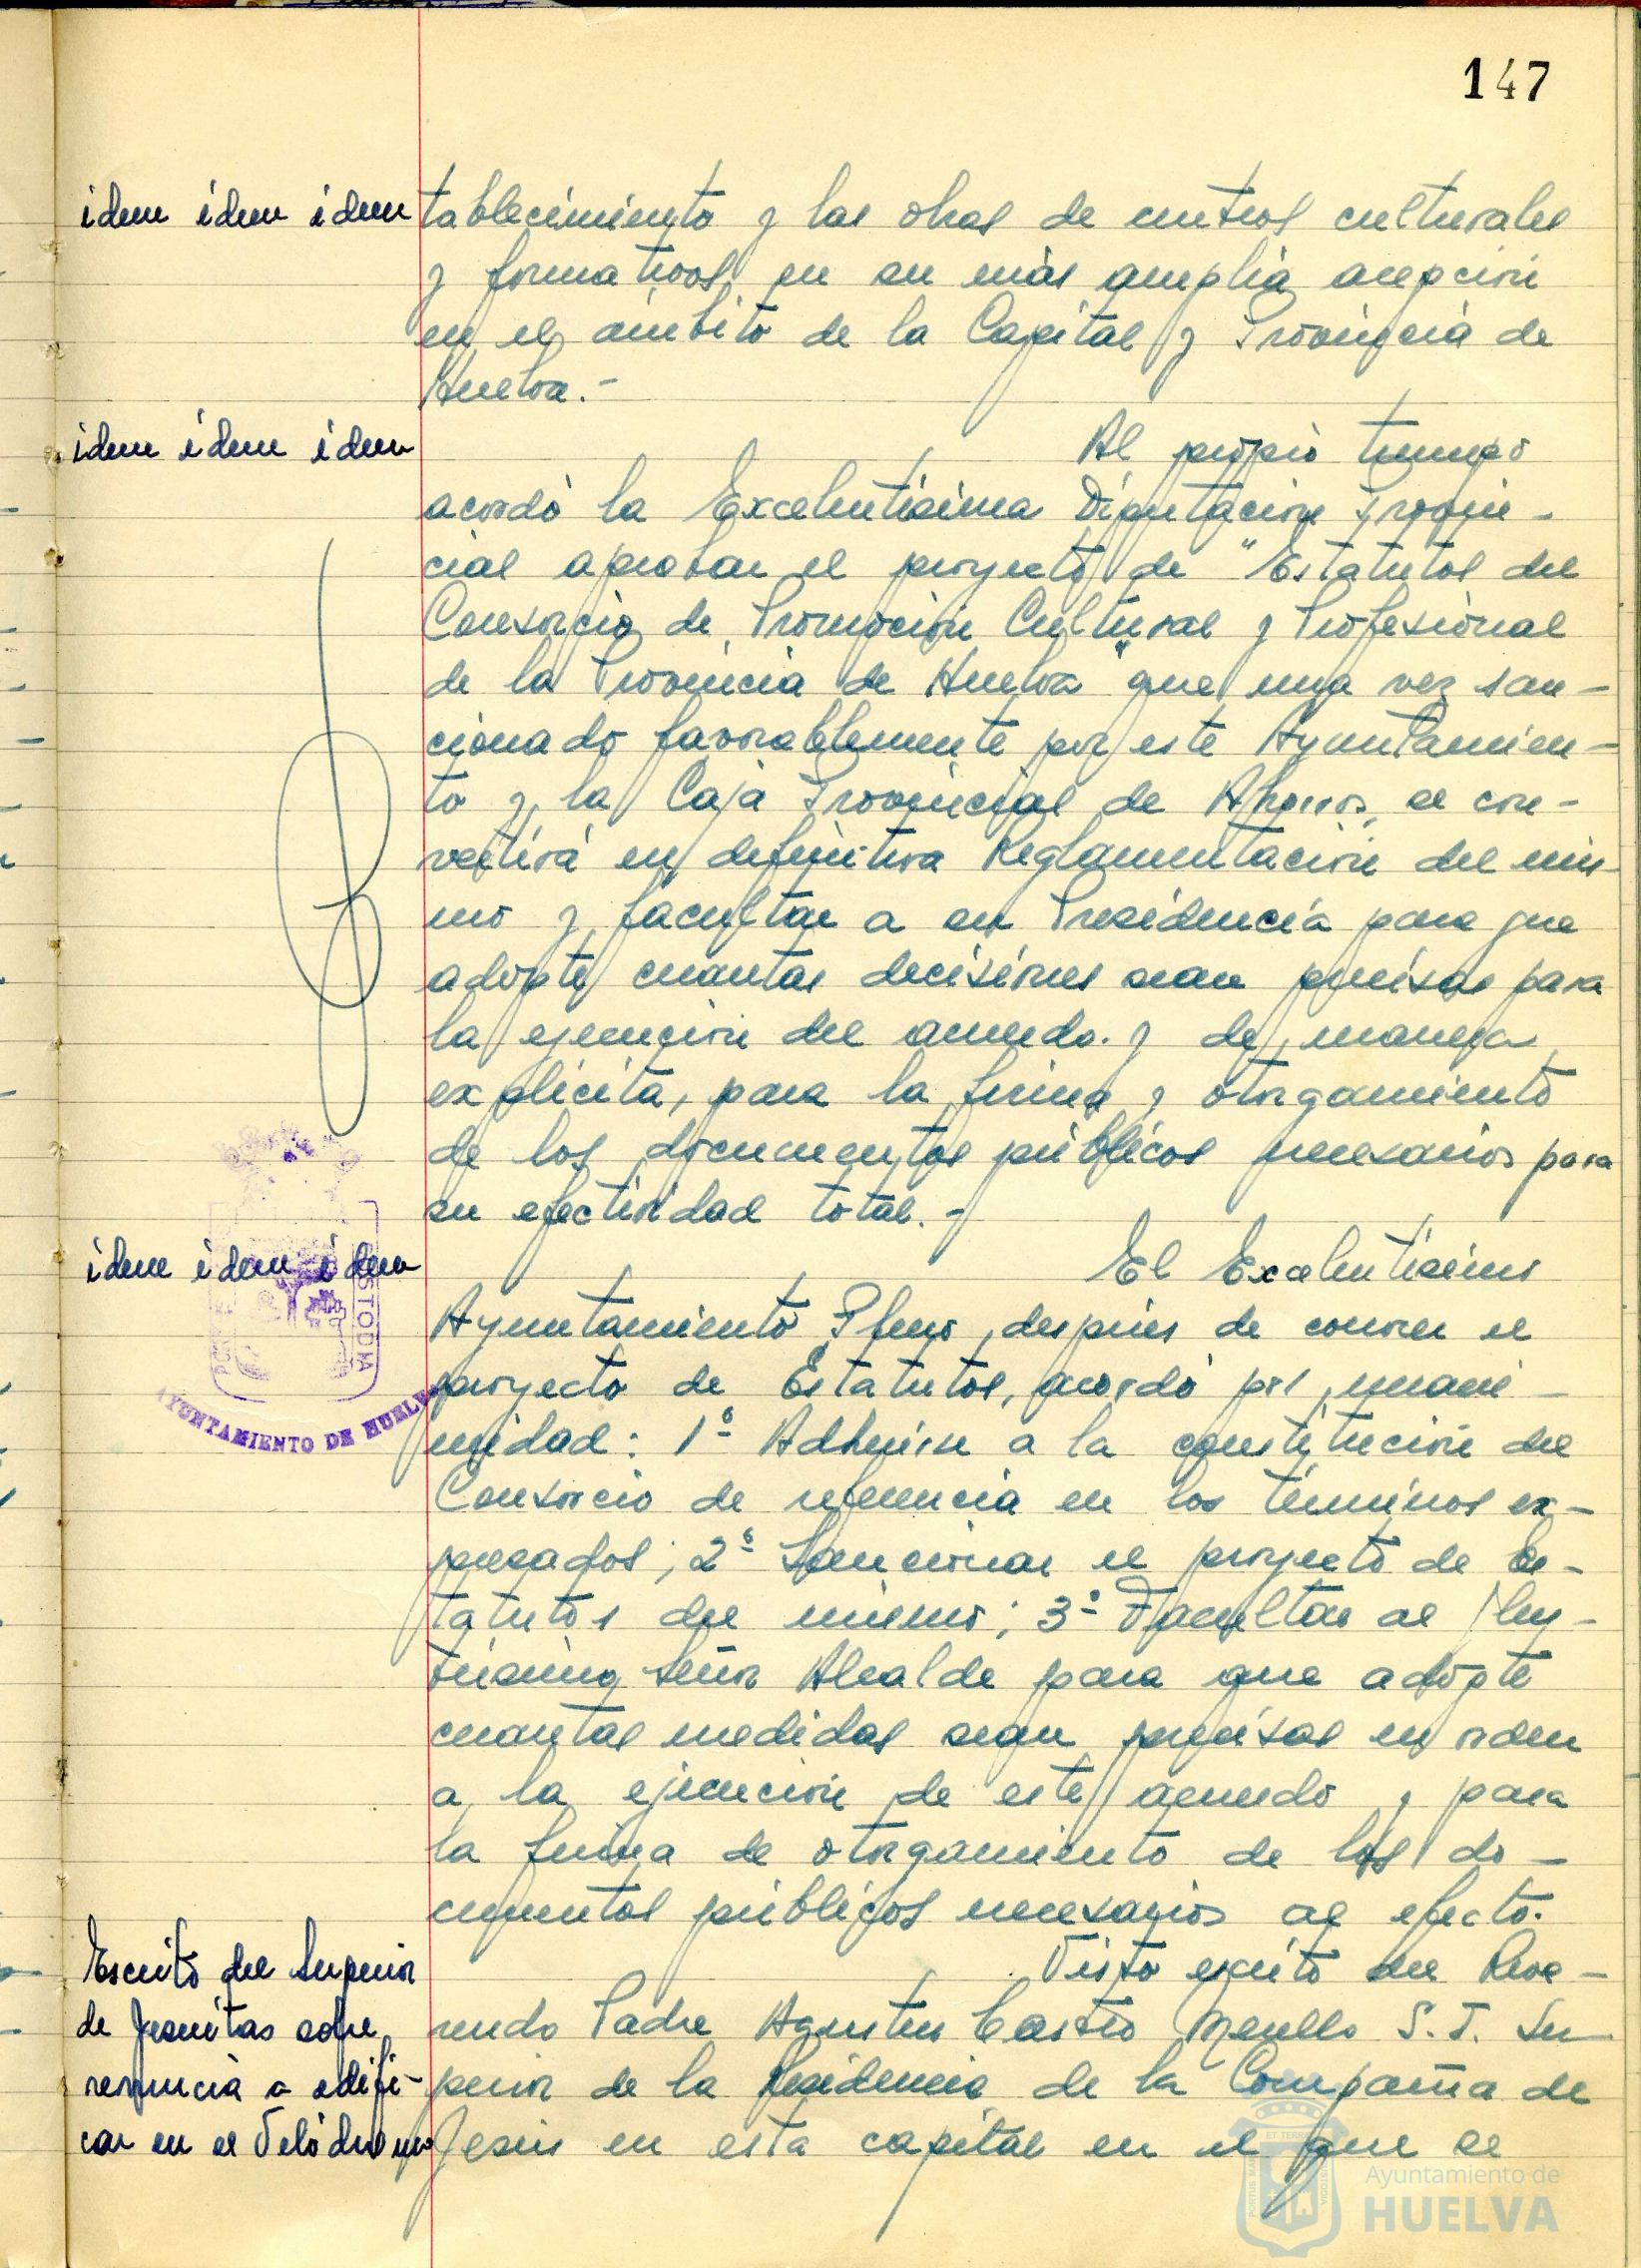 147
idem idem idem
tablecimiento y las obras de centros culturales
y formativos, en su más amplia acepción
en el ámbito de la Capital y Provincia de
Huelva.-
idem idem idem
Al propio tiempo
acordó la Excelentísima Diputación Provin-
cial aprobar el proyecto de "Estatutos del
Consorcio de Promoción Cultural y Profesional
de la Provincia de Huelva" que una vez san-
cionado favorablemente por este Ayuntamien-
to y la Caja Provincial de Ahorros, se con-
vertirá en definitiva Reglamentación del mis-
mo y facultar a su Presidencia para que
adopte cuantas decisiones sean precisas para
la ejecución del acuerdo. y de manera
explícita, para la firma y otorgamiento
de los documentos públicos necesarios para
su efectividad total.-
idem idem idem
El Excelentísimo
Ayuntamiento Pleno, después de conocer el
proyecto de Estatutos, acordó por unani-
midad: 1º Adherirse a la constitución del
Consorcio de referencia en los términos ex-
presados; 2º Sancionar el proyecto de Es-
tatutos del mismo; 3º Facultar al Ilus-
trísimo Señor Alcalde para que adopte
cuantas medidas sean precisas en orden
a la ejecución de este acuerdo y para
la firma de otorgamiento de los do-
cumentos públicos necesarios al efecto.
AYUNTAMIENTO DE HUELVA
Escrito del Superior
de Jesuitas sobre
renuncia a edifi-
car en el Velódromo
Visto escrito del Reve-
rendo Padre Agustín Castro S.J. Su-
perior de la Residencia de la Compañía de
Jesús en esta capital en el que se
Ayuntamiento de
HUELVA